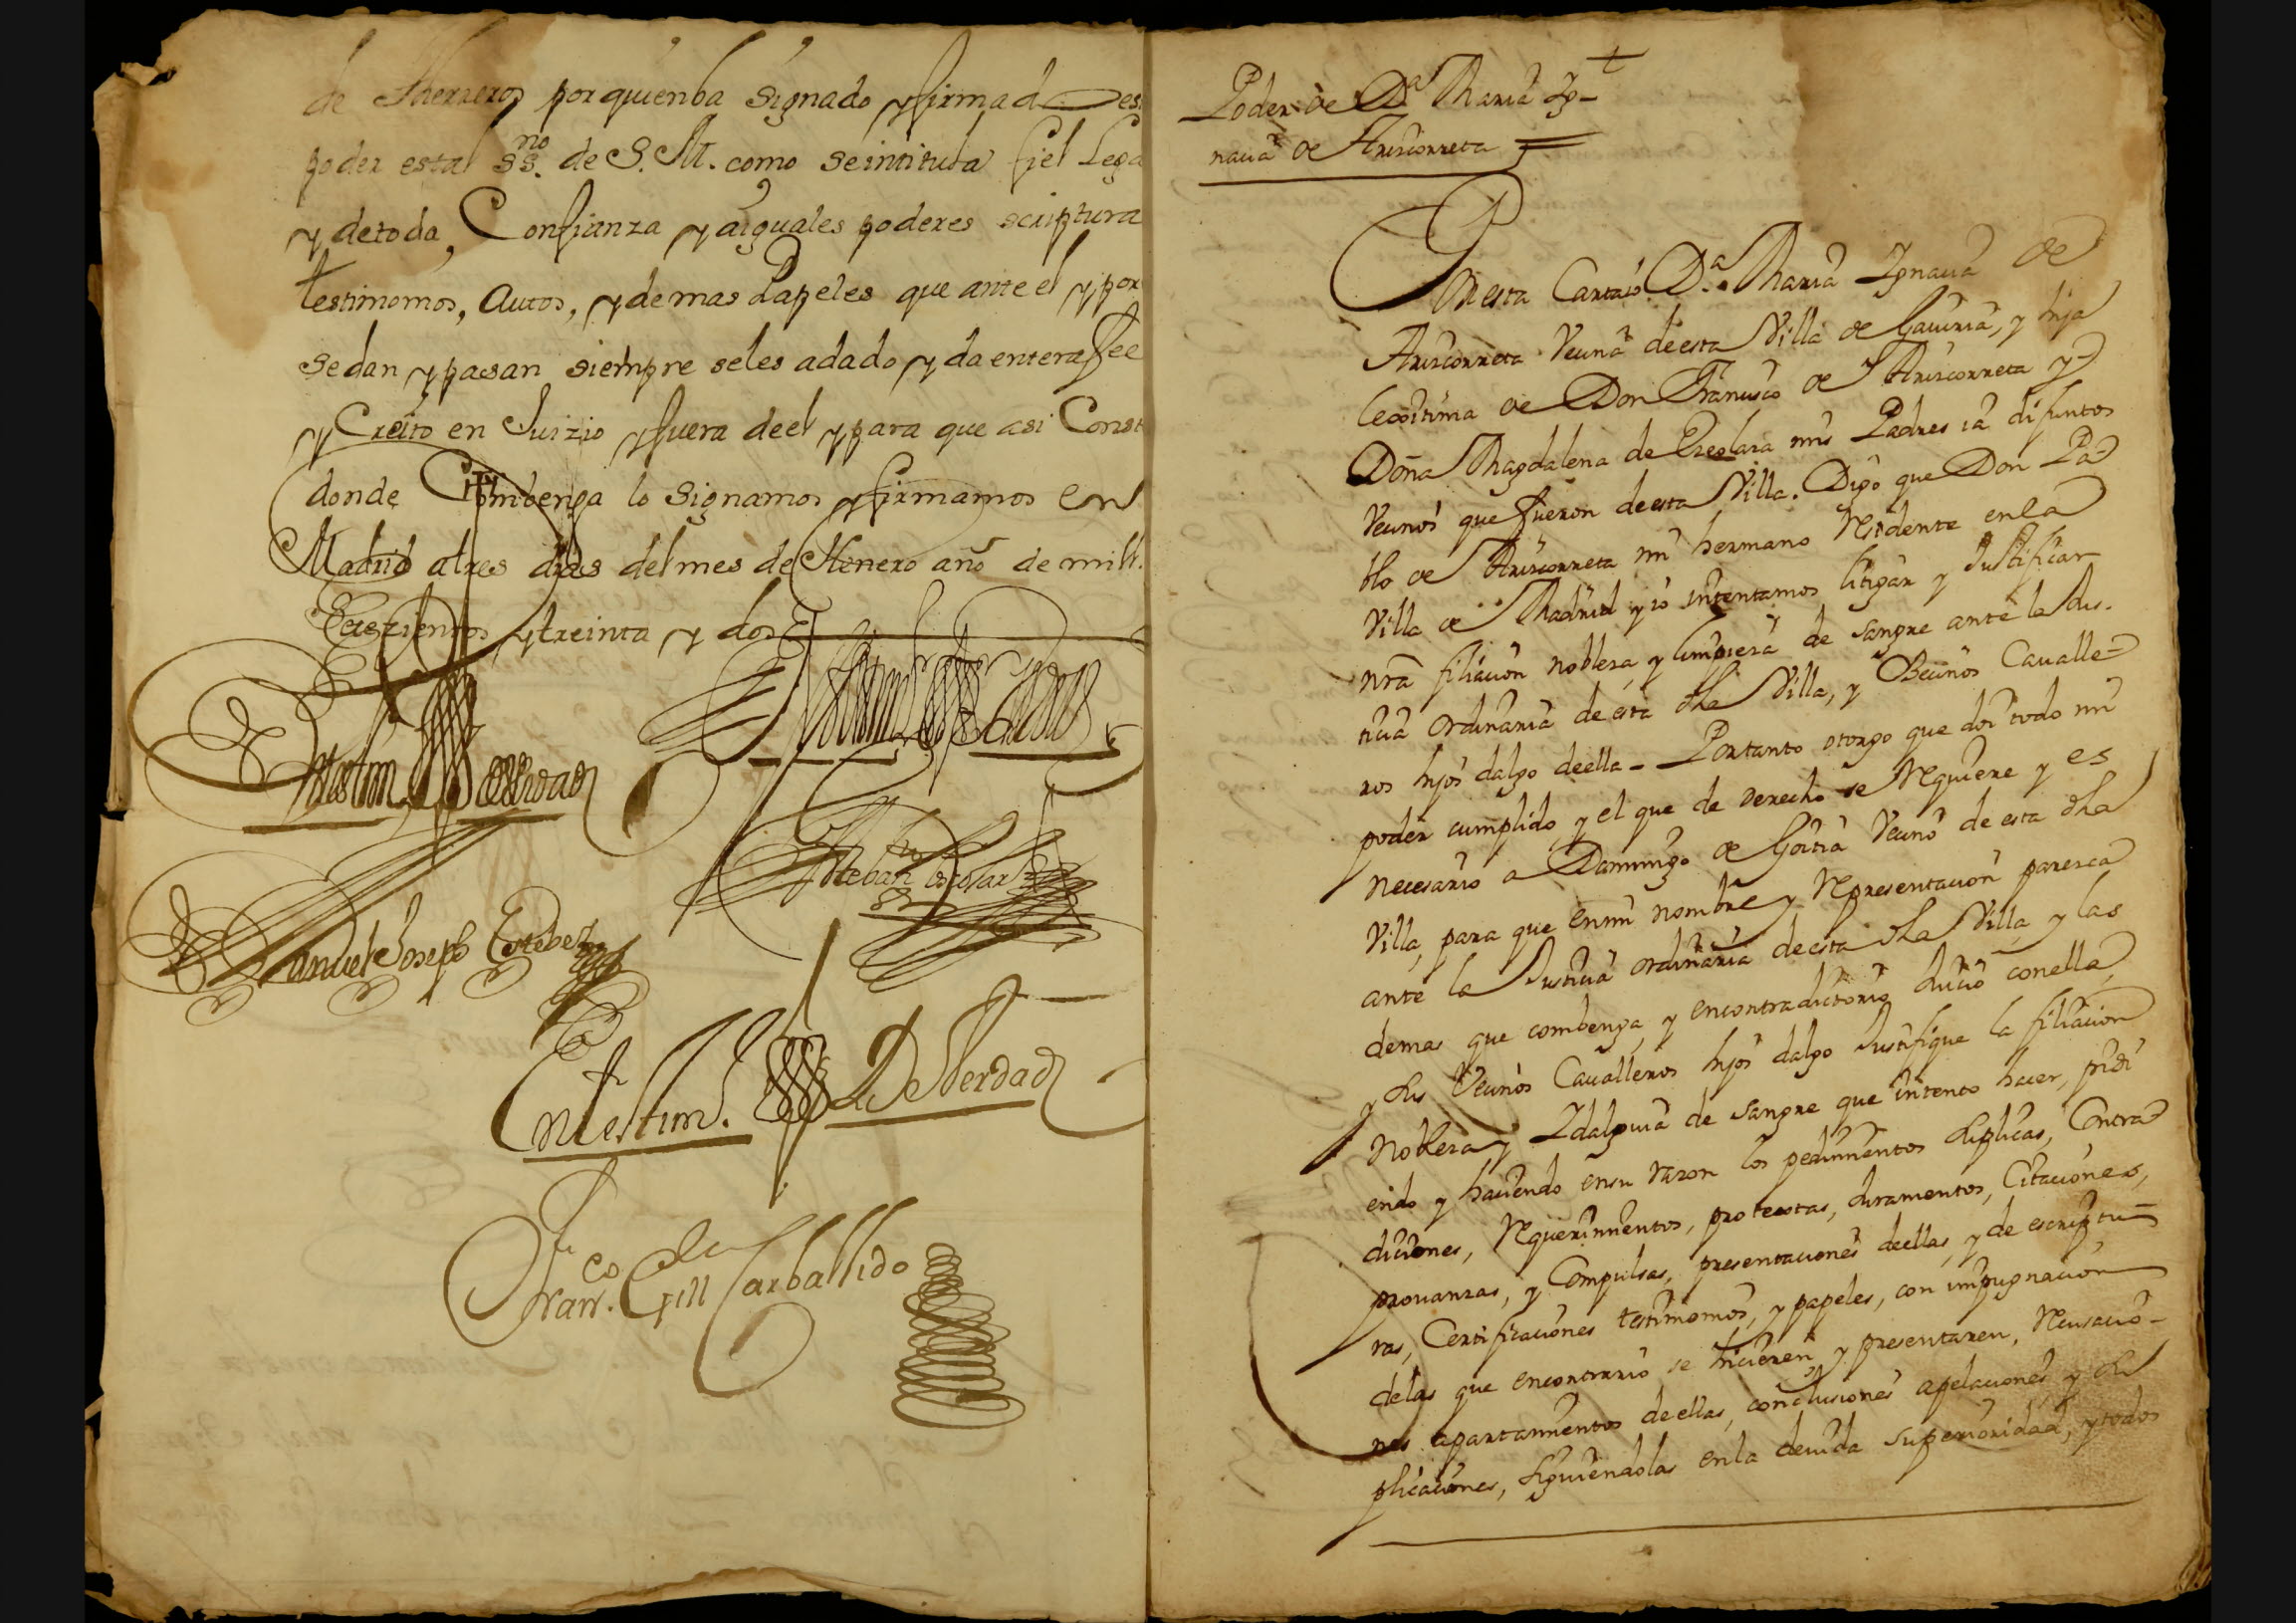 de Therreros por quien ba signado y firmado es
poder es tal ss.no de S. M. como se intitula fiel Lega
y de toda Confianza y a iguales poderes scriptura
testimonios, Autos, y demas Papeles que ante el y por
se dan y pasan siempre seles a dado y da entera fee
y Credito en Juizio y fuera de el y para que asi Const
donde Combenga lo signamos y firmamos en
Madrid a tres dias del mes de Henero año de mill.
setezientos y treinta y dos
En testim.o de Verdad
Esteban Escolar
Manuel Joseph Estebez
En testim.o de Verdad
Fran.co Gill Carballido
Poder de D.a Maria Ig-
nacia de Ariscorreta
En esta Carta io D.a Maria Ignacia de
Ariscorreta Vecina de esta Villa de Gauiria, y hija
lexitima de Don Francisco de Ariscorreta y
Doña Magdalena de mis Padres ia difuntos
Vecinos que fueron de esta Villa. Digo que Don Pa-
blo de Ariscorreta mi hermano Residente en la
Villa de Madrid y io intentamos litigar y Justificar
nrã filiacion nobleza, y limpieza de sangre ante la Jus-
ticia Ordinaria de esta dha Villa, y Vecinos Caualle-
ros hijos dalgo de ella - Portanto otorgo que doi todo mi
poder cumplido, y el que de derecho se Requiere y es
necesario a Domingo de Goitia Vecino de esta dha
Villa, para que en mi nombre y Representacion parezca
ante la Justicia ordinaria de esta dha Villa y las
demas que combenga, y en contradictorio Juicio con ella,
y sus Vecinos Caualleros hijos dalgo Justifique la filiacion
Nobleza y Idalguia de sangre que intento hacer, pidi
endo y haciendo en su razon los pedimientos suplicas, Contra
diciones, Requerimientos, protestas, Juramentos, Citaciones,
prouanzas, y Compulsas, presentaciones de ellas y de escriptu-
ras, Certificaciones testimonios, y papeles, con impugnacion
de las que en contrario se hicieren y presentaren, Recusacio-
nes apartamientos de ellas, conclusiones apelaciones y su
plicaciones, siguiendolas en la deuida superioridad, y todos